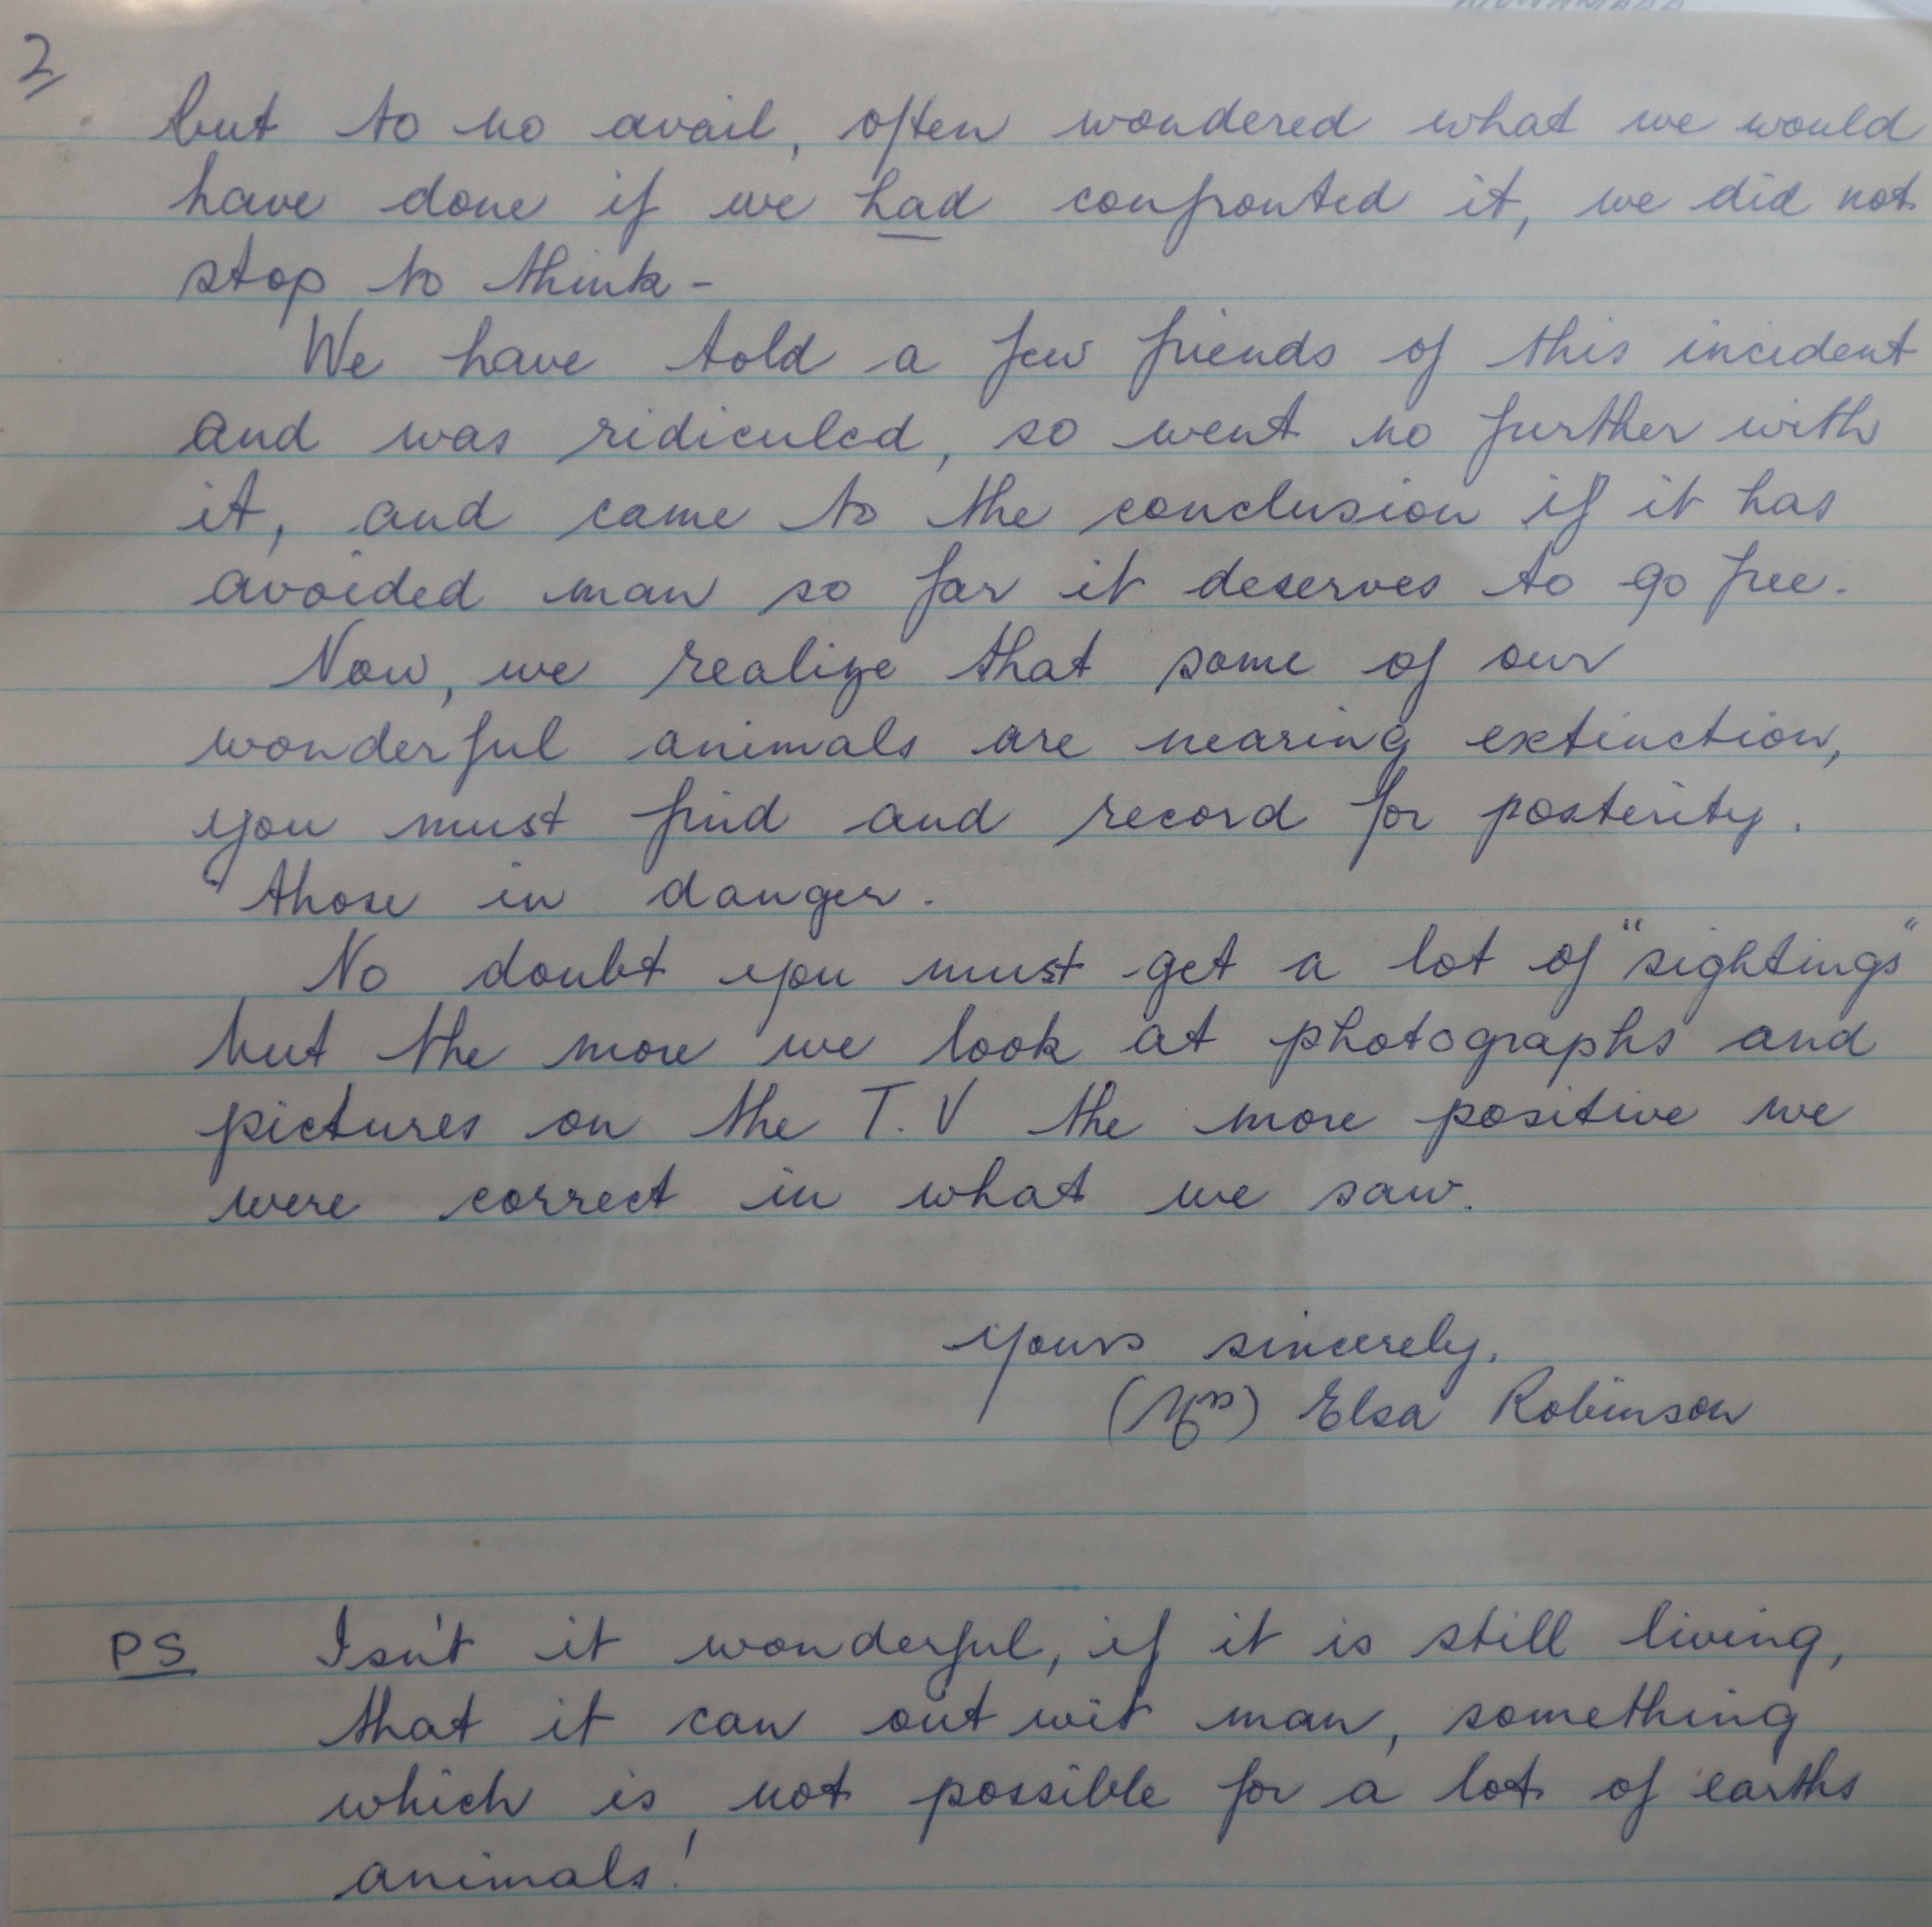 2
but to no avail, often wondered what we would
have done if we had confronted it, we did not
stop to think -
We have told a few friends of this incident
and was ridiculed, so went no further with
it, and came to the conclusion if it has
avoided man so far it deserves to go free.
Now, we realize that some of our
wonderful animals are nearing extinction,
you must find and record for posterity.
those in danger.
No doubt you must get a lot of "sightings"
but the more we look at photographs and
pictures on the T.V the more positive we
were correct in what we saw.
Yours sincerely,
(Mrs) Elsa Robinson
PS Isn't it wonderful, if it is still living,
that it can out wit man, something
which is not possible for a lot of earths
animals!